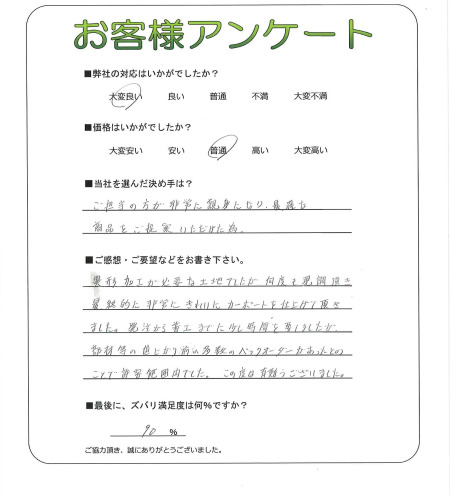 お客様アンケート
■弊社の対応はいかがでしたか？
大変良い 良い 普通 不満 大変不満
■価格はいかがでしたか？
大変安い 安い 普通 高い 大変高い
■当社を選んだ決め手は？
ご担当の方が非常に親身になり、最適な
商品をご提案いただけた為。
■ご感想・ご要望などをお書き下さい。
異形加工が必要な土地でしたが何度も現調頂き
最終的に非常にきれいにカーポートを仕上げて頂き
ました。発注から着工までに少し時間を要しましたが、
部材等の値上がり前の多数のバックオーダーがあったとの
ことで許容範囲内でした。この度は有難うございました。
■最後に、ズバリ満足度は何％ですか？
90 ％
ご協力頂き、誠にありがとうございました。